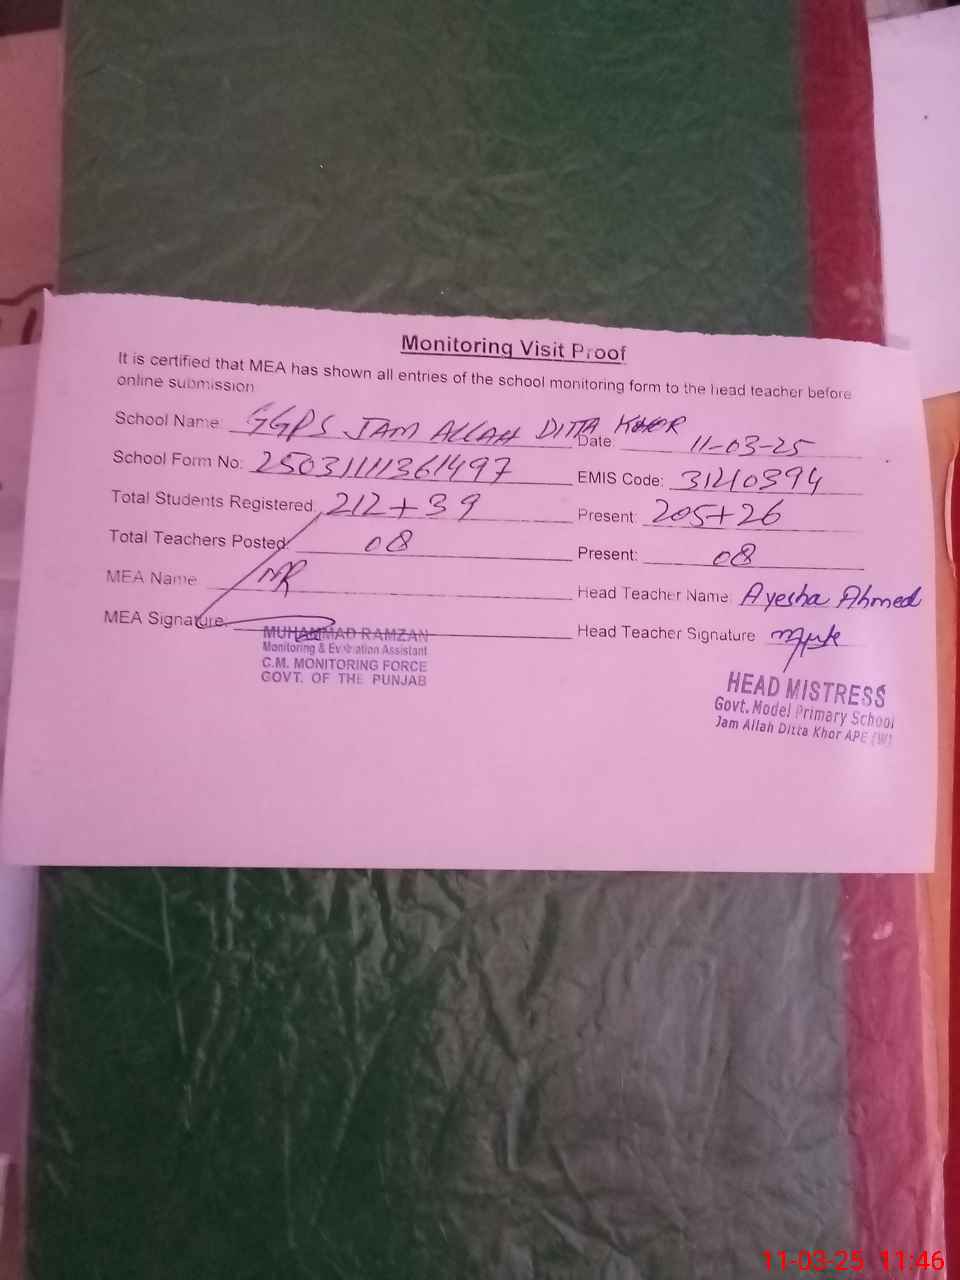 Monitoring Visit Proof
It is certified that MEA has shown all entries of the school monitoring form to the head teacher before
online submission
School Name: GGPS JAM ALLAH DITTA KHOR Date: 11-03-25
School Form No: 25031111361497 EMIS Code: 31210394
Total Students Registered: 212+39 Present: 205+26
Total Teachers Posted: 08 Present: 08
MEA Name MR Head Teacher Name: Ayesha Ahmed
MEA Signature: Head Teacher Signature
MUHAMMAD RAMZAN
Monitoring & Evaluation Assistant
C.M. MONITORING FORCE
GOVT. OF THE PUNJAB
HEAD MISTRESS
Govt. Model Primary School
Jam Allah Ditta Khor APE (W)
11-03-25 11:46